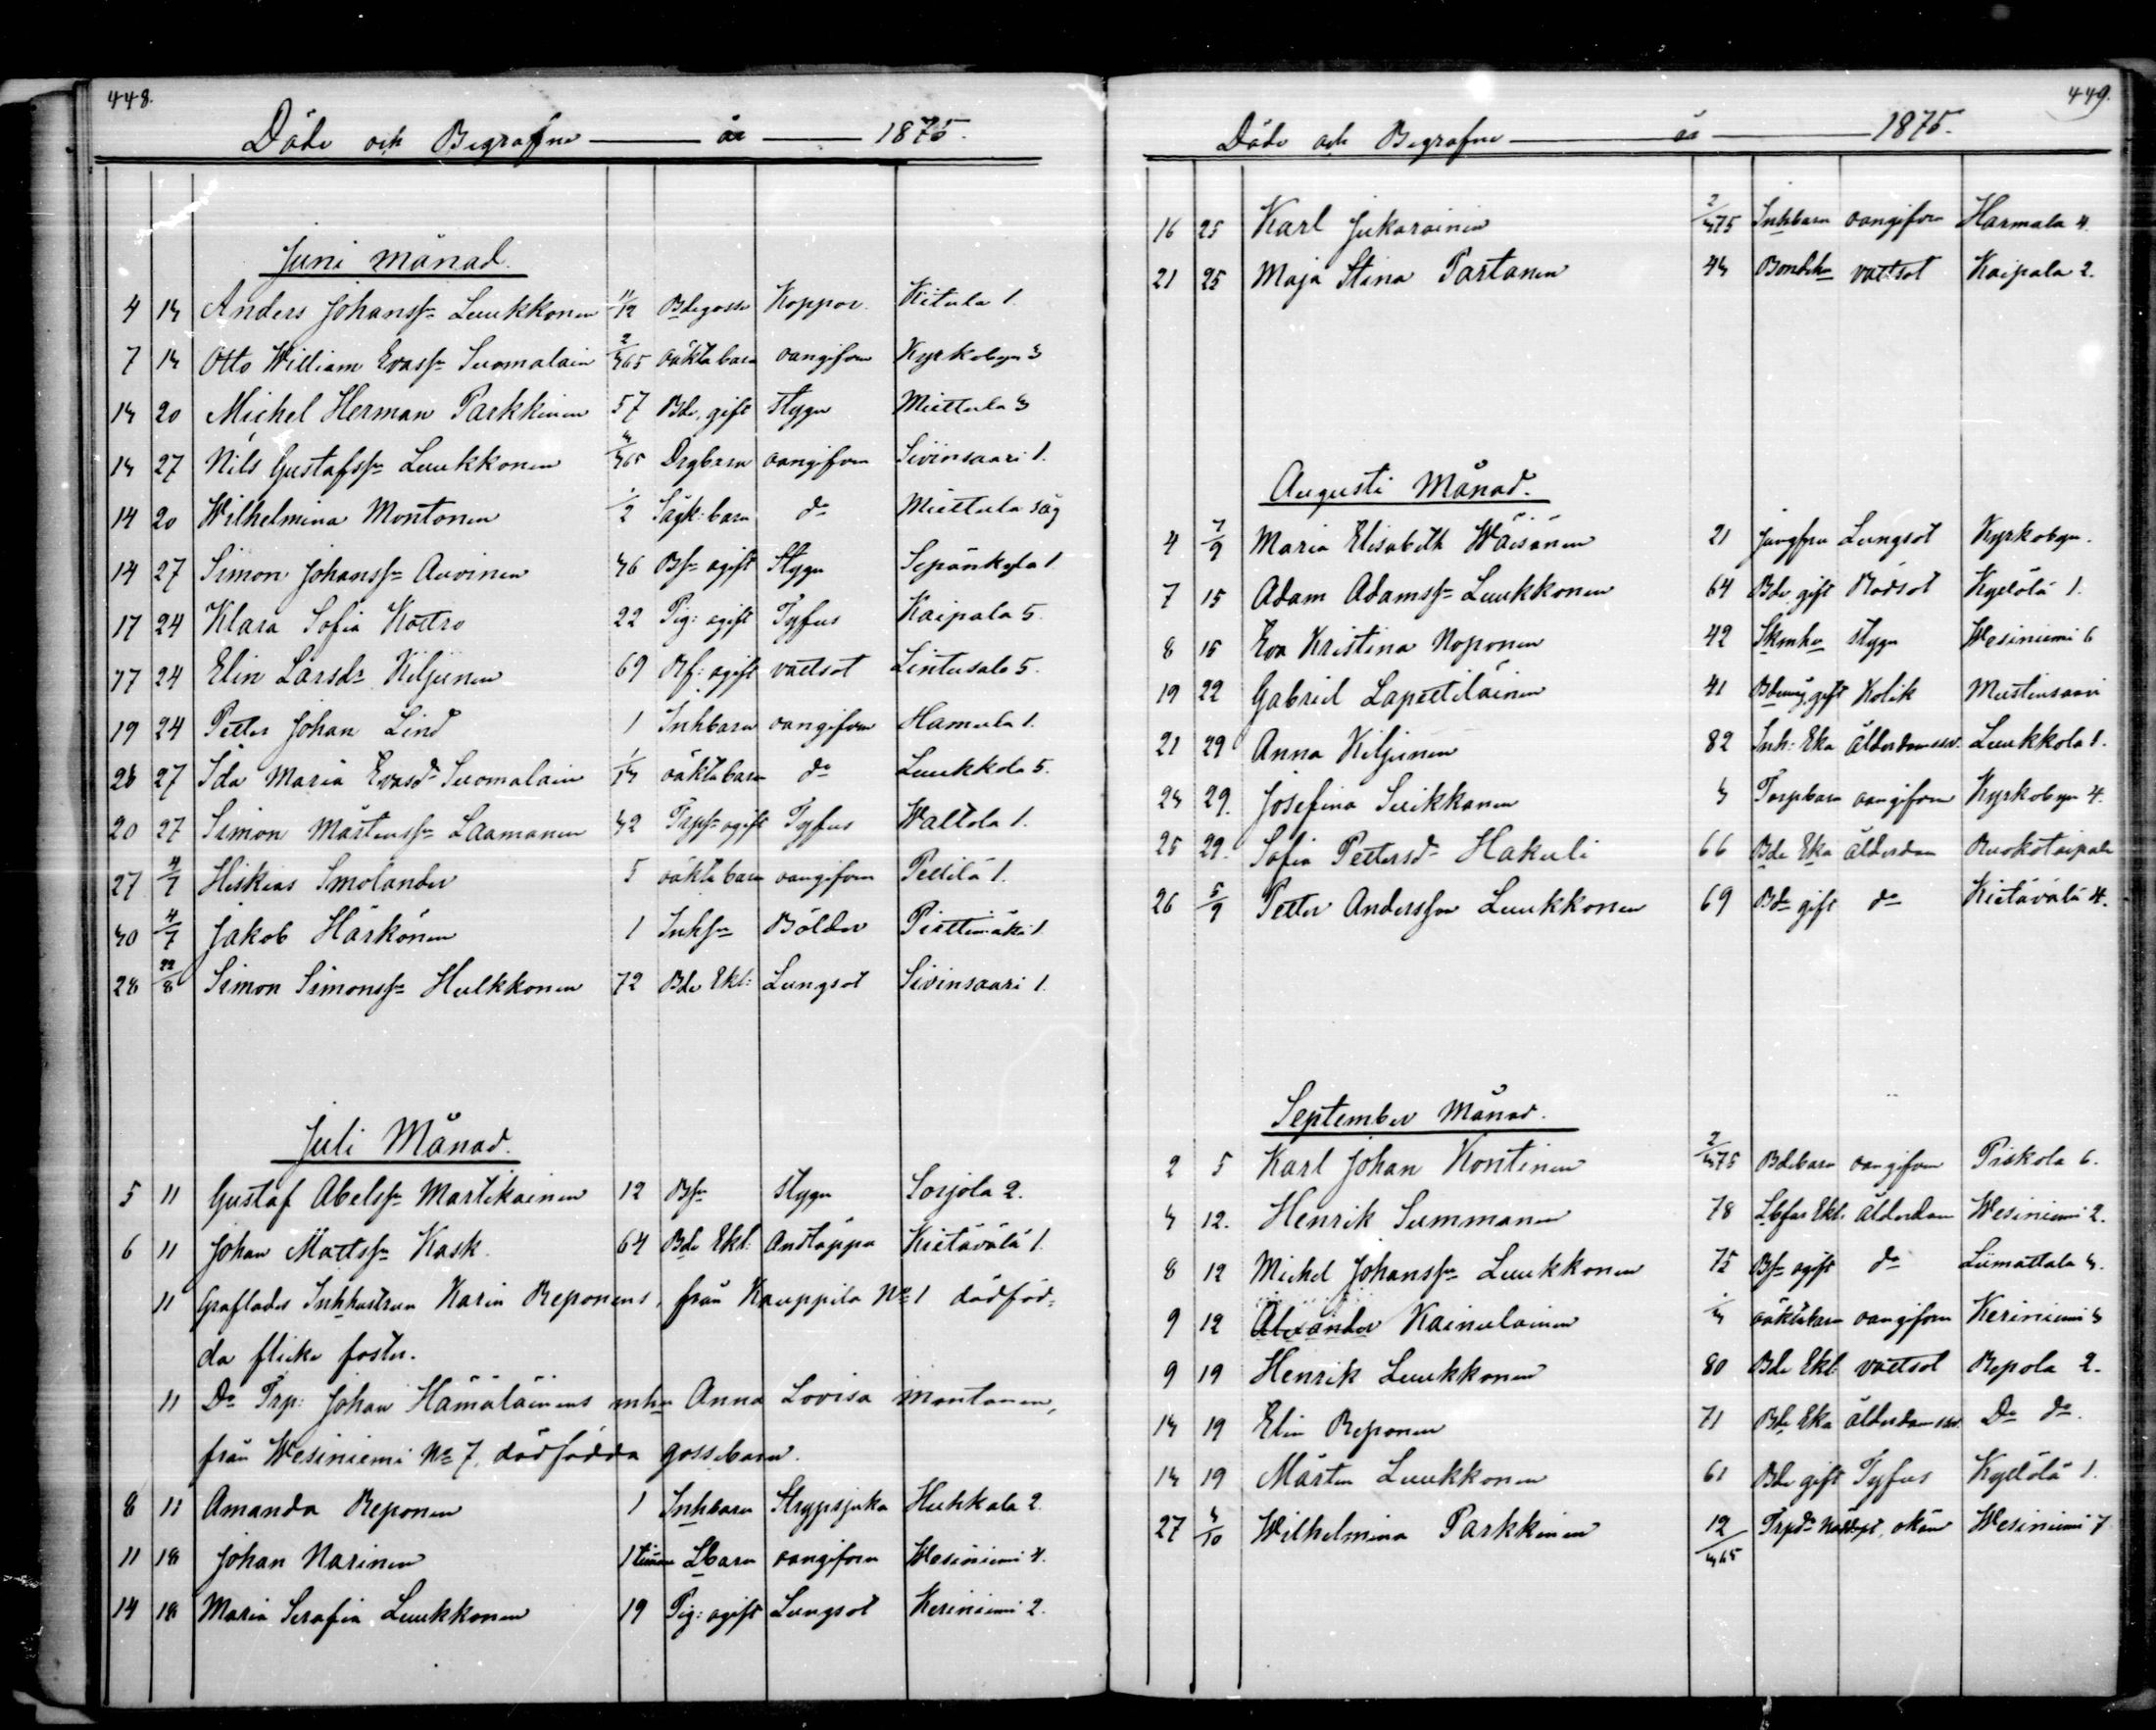 448.
Döde och Begrafne år 1875.
Juni månad.
4 13 Anders Johanss:n Luukkonen 11/12 Bdegosse Koppor. Kitula 1.
7 13 Otto William Evass:n Suomalain 2/365 oäkta barn oangifven Kyrkobyn 3
13 20 Michel Herman Parkkinen 57 Bde, gift stygn Miettula 3
13 27 Nils Gustafss:n Luukkonen 3/365 Drgbarn oangifven Sivinsaari 1.
14 20 Wilhelmina Montonen 1/2 Sågk: barn d:o Miettula såg
14 27 Simon Johanss:n Auvinen 36 Bs:n ogift Stygn Sepänkylä 1
17 24 Klara Sofia Kostro 22 Pig: ogift Tyfus Kaipala 5.
17 24 Elin Larsd:r Kiljunen 69 ogift vattsot Lintusalo 5.
19 24 Petter Johan Lind 1 Inhbarn oangifven Hamula 1.
26 27 Ida Maria Evasd:r Suomalain 1/13 oäkta barn d:o Luukkola 5.
20 27 Simon Mårtenss:n Laamanen 32 Trps:n ogift Tyfus Waltola 1.
27 4/7 Hiskias Smolander 5 oäkta barn oangifven Petilä 1.
30 4/7 Jakob Härkönen 1 Inhs:n Bölder Pirttimäki 1.
28 22/8 Simon Simonss:n Hulkkonen 72 Bde Ekl: Lungsot Sivinsaari 1.
Juli Månad.
5 11 Gustaf Abelss:n Martikainen 12 Bs:n stygn Sorjola 2.
6 11 Johan Mattss:n Kask 64 Bde Ekl: Andtäppa Kietävälä 1.
11 Graflades Inhhustrun Karin Reponens, från Kauppila N:o 1 dödföd-
da flicke foster.
11 D:o Trp: Johan Hämäläinens mh:u Anna Lovisa Montonen,
från Wesiniemi N:o 7, dödfödda gossebarn.
8 11 Amanda Reponen 1 Inhbarn Strypsjuka Huhkala 2.
11 18 Johan Narinen 1 timme Lbarn oangifven Wesiniemi 4.
14 18 Maria Serafia Luukkonen 19 Pig: ogift Lungsot Keriniemi 2.
449.
Döde och Begrafne år 1875.
16 25 Karl Jukarainen 2/375 Inhbarn oangifven Harmala 4.
21 25 Maja Stina Partanen 43 Bondeh:u vattsot Kaipala 2.
Augusti Månad.
4 7/9 Maria Elisabeth Wäisänen 21 jungfru Lungsot Kyrkobyn.
7 15 Adam Adamss:n Luukkonen 64 Bde gift Rödsot Kyelölä 1.
8 15 Eva Kristina Noponen 42 stygn Wesiniemi 6
19 22 Gabriel Lapveteläinen 41 gift Kolik Mustinsaari
21 29 Anna Kiljunen 82 Inh: Eka Ålderdomssv. Luukkola 1.
23 29. Josefina Suikkanen 3 Torpbarn oangifven Kyrkobyn 4.
25 29. Sofia Pettersd:r Hakuli 66 Bde Eka ålderdom Ruokotaipale
26 5/9 Petter Anderss:n Luukkonen 69 Bde gift d:o Kietävälä 4.
September Månad.
2 5 Karl Johan Kontinen 2/375 Bdebarn oangifven Piskola 6.
3 12. Henrik Summanen 78 Ekl. ålderdom Wesiniemi 2.
8 12 Michel Johanss:n Luukkonen 75 Bs:n ogift d:o Liimattala 3.
9 12 Alexander Kainulainen 1/3 oäktabarn oangifven Keriniemi 3
9 19 Henrik Luukkonen 80 Bde Ekl: vattsot Repola 2.
13 19 Elin Reponen 71 Bde Eka ålderdomssv. D:o d:o.
13 19 Mårten Luukkonen 61 Bde gift Tyfus Kyelölä 1.
27 3/10 Wilhelmina Parkkinen 12/365 Trpd:r Nöddöpt, okän Wesiniemi 7